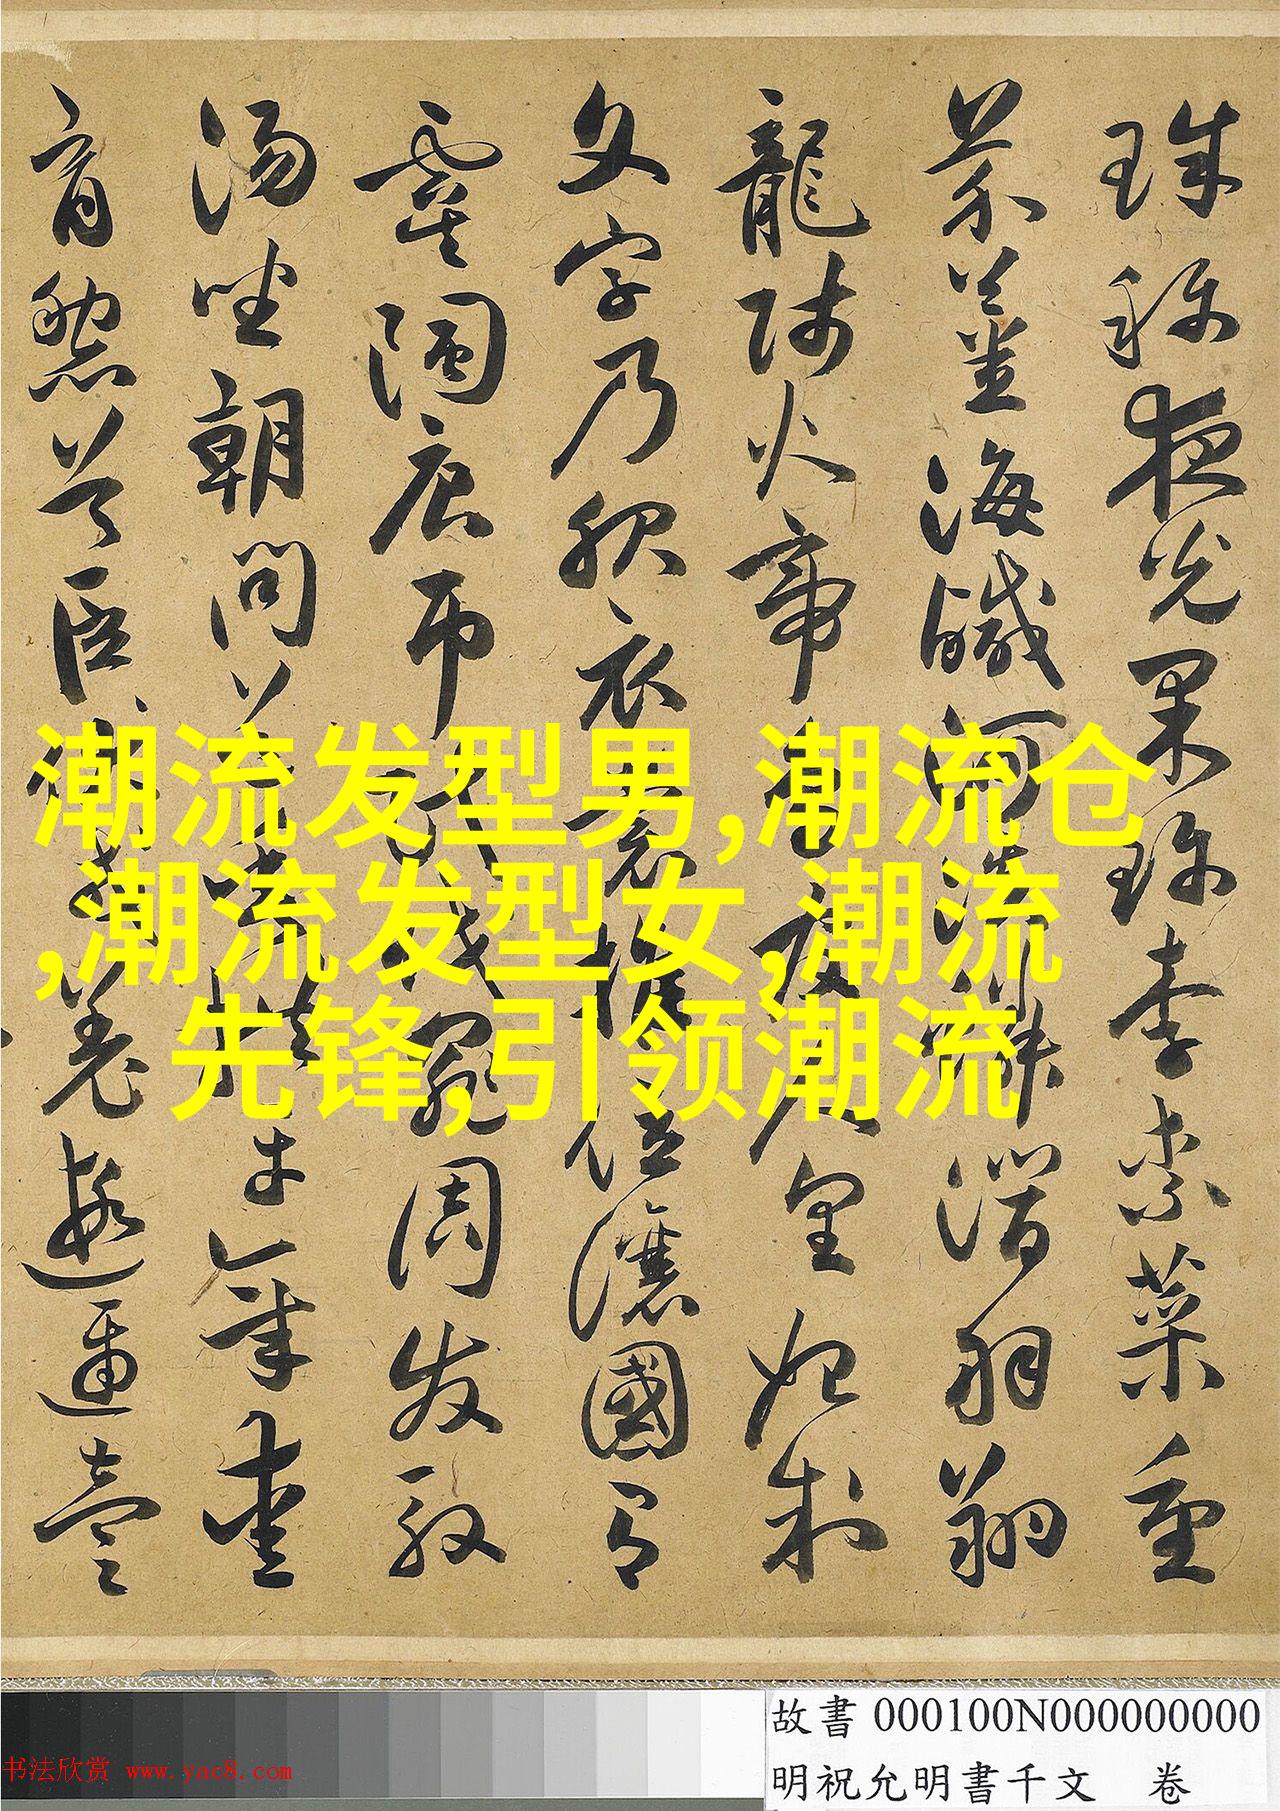 珠称夜光果珍李柰菜重
芥薑海鹹河淡鱗潛羽翔
龍師火帝鳥官人皇始制
文字乃服衣裳推位讓國有
虞陶唐弔民伐罪周发殷
湯坐朝問道垂拱平章愛
育黎首臣伏戎羌遐邇壹
潮流发型男,潮流仓
,潮流发型女,潮流
先锋,引领潮流
故書 000100N000000000
明祝允明書千文 卷
书法欣赏 www.yac8.com